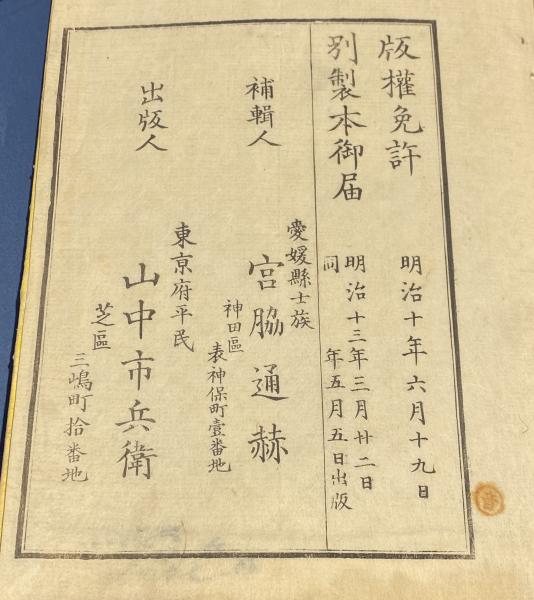 版權免許　明治十年六月十九日
別製本御届　明治十三年三月廿二日
同　年五月五日出版
愛媛縣士族
補輯人　宮脇通赫
神田區
表神保町壹番地
東京府平民
出版人　山中市兵衛
芝區
三嶋町拾番地